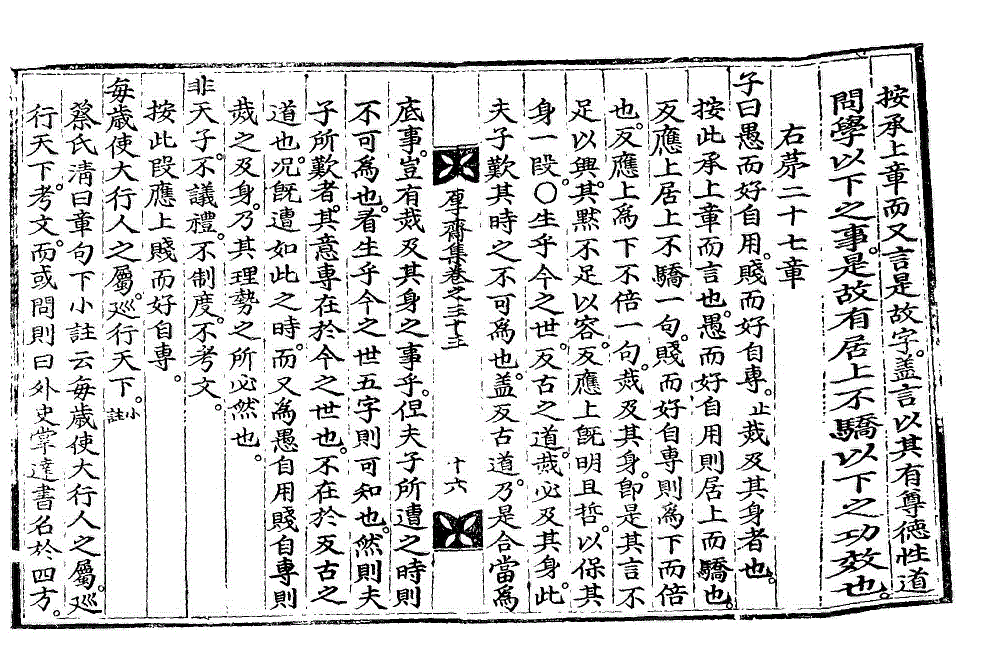 按承上章而又言是故字。盖言以其有尊德性道
問學以下之事。是故有居上不驕以下之功效也。
右苐二十七章
子曰愚而好自用。賤而好自專。止烖及其身者也。
按此承上章而言也。愚而好自用則居上而驕也。
反應上居上不驕一句。賤而好自専則爲下而倍
也。反應上爲下不倍一句。烖及其身。卽是其言不
足以興。其默不足以容。反應上旣明且哲。以保其
身一段。○生乎今之世。反古之道。烖必及其身。此
夫子歎其時之不可爲也。盖反古道。乃是合當爲
厚齋集卷之三十三
十六
底事。豈有烖及其身之事乎。但夫子所遭之時則
不可爲也。看生乎今之世五字則可知也。然則夫
子所歎者。其意専在於今之世也。不在於反古之
道也。况旣遭如此之時。而又爲愚自用賤自專則
烖之及身。乃其理勢之所必然也。
非天子。不議禮。不制度。不考文。
按此段應上賤而好自専。
每歲使大行人之屬。巡行天下。小註
蔡氏淸曰章句下小註云每歲使大行人之屬。巡
行天下。考文。而或問則曰外史掌達書名於四方。